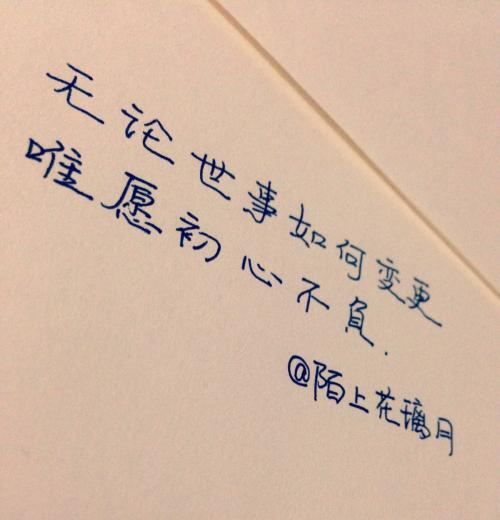 无论世事如何变更
唯愿初心不負.
@陌上花璃月